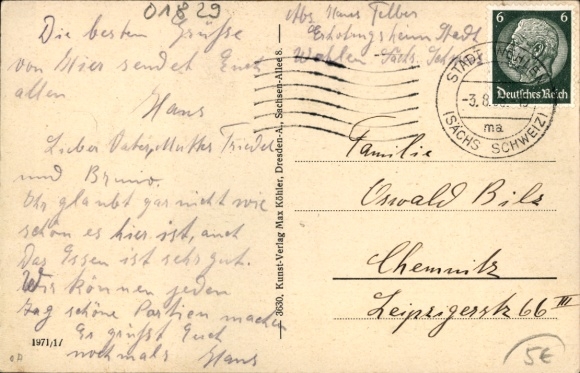 01829
Die besten Grüße
von Hier sendet Euch
allen
Hans
Lieber Vater, Mutter, Friedel
und Bruno.
Ihr glaubt gar nicht wie
schön es hier ist, auch
Das Essen ist sehr gut.
Wir können jeden
Tag schöne Partien machen
Es grüßt Euch
nochmals Hans
1971/17
3630, Kunst-Verlag Max Köhler, Dresden-A., Sachsen-Allee 8.
Abs. Hans
Erholungsheim Stadt
Wehlen Sächs.
6 6
Deutsches Reich
STADT
-3.8.
ma
(SÄCHS SCHWEIZ)
Familie
Oswald Bilz
Chemnitz
Leipzigerstr 66 III
5€